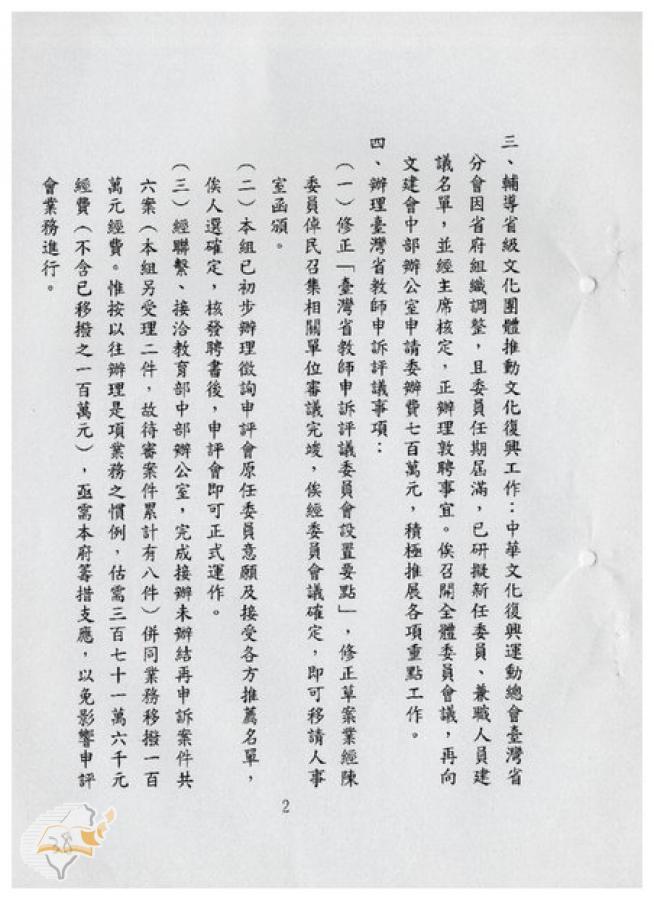 三、輔導省級文化團體推動文化復興工作：中華文化復興運動總會臺灣省
分會因省府組織調整，且委員任期屆滿，已研擬新任委員、兼職人員建
議名單，並經主席核定，正辦理敦聘事宜。俟召開全體委員會議，再向
文建會中部辦公室申請委辦費七百萬元，積極推展各項重點工作。
四、辦理臺灣省教師申訴評議事項：
（一）修正「臺灣省教師申訴評議委員會設置要點」，修正草案業經陳
委員倬民召集相關單位審議完竣，俟經委員會議確定，即可移請人事
室函頒。
（二）本組已初步辦理徵詢申評會原任委員意願及接受各方推薦名單，
俟人選確定，核發聘書後，申評會即可正式運作。
（三）經聯繫、接洽教育部中部辦公室，完成接辦未辦結再申訴案件共
六案（本組另受理二件，故待審案件累計有八件）併同業務移撥一百
萬元經費。惟按以往辦理是項業務之慣例，估需三百七十一萬六千元
經費（不含已移撥之一百萬元），亟需本府籌措支應，以免影響申評
會業務進行。
2
28